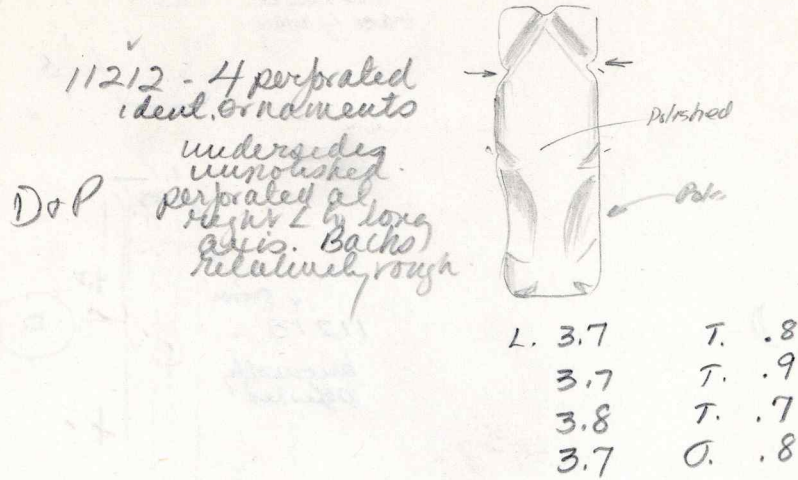 11212 - 4 perforated
ident. ornaments
undersides
unpolished.
perforated at
right ∠ to long
axis. Backs
relatively rough
D+P
Polished
L. 3.7 T. .8
3.7 T. .9
3.8 T. .7
3.7 O. .8